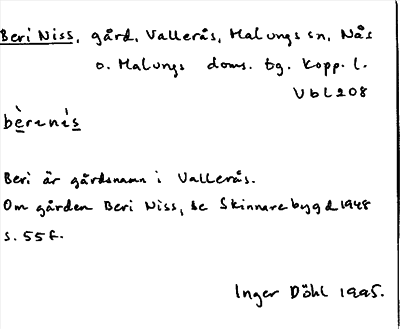 Beri Niss, gård, Vallerås, Malungs sn, Nås
o. Malungs doms. tg. Kopp. l.
VbL208
Beri är gårdsnamn i Vallerås.
Om gården Beri Niss, se Skinnarebygd 1948
s. 55 f.
Inger Döhl 1995.